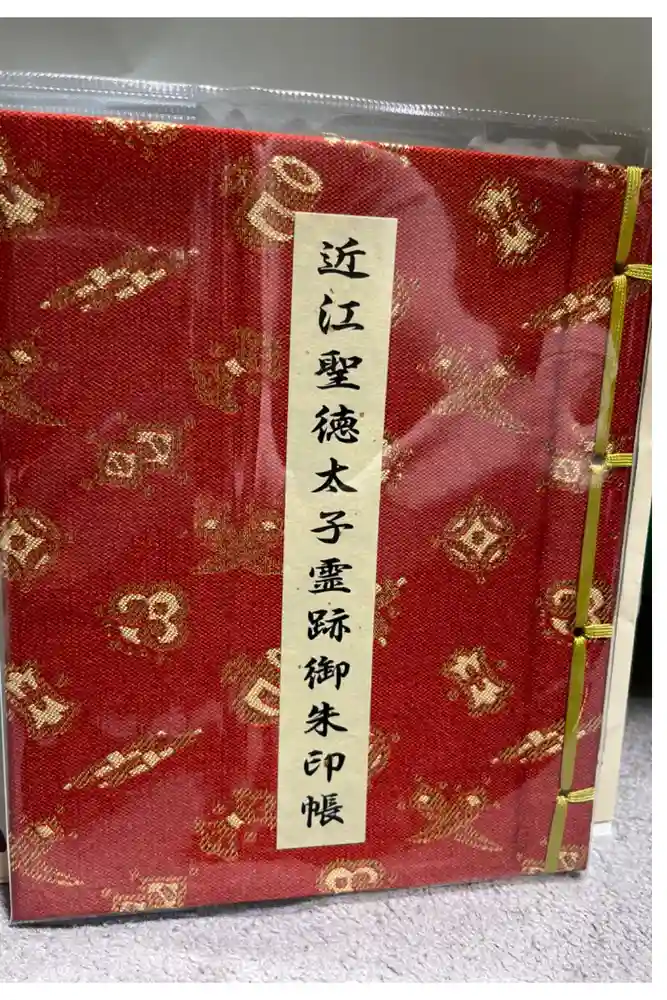 近江聖徳太子霊跡御朱印帳